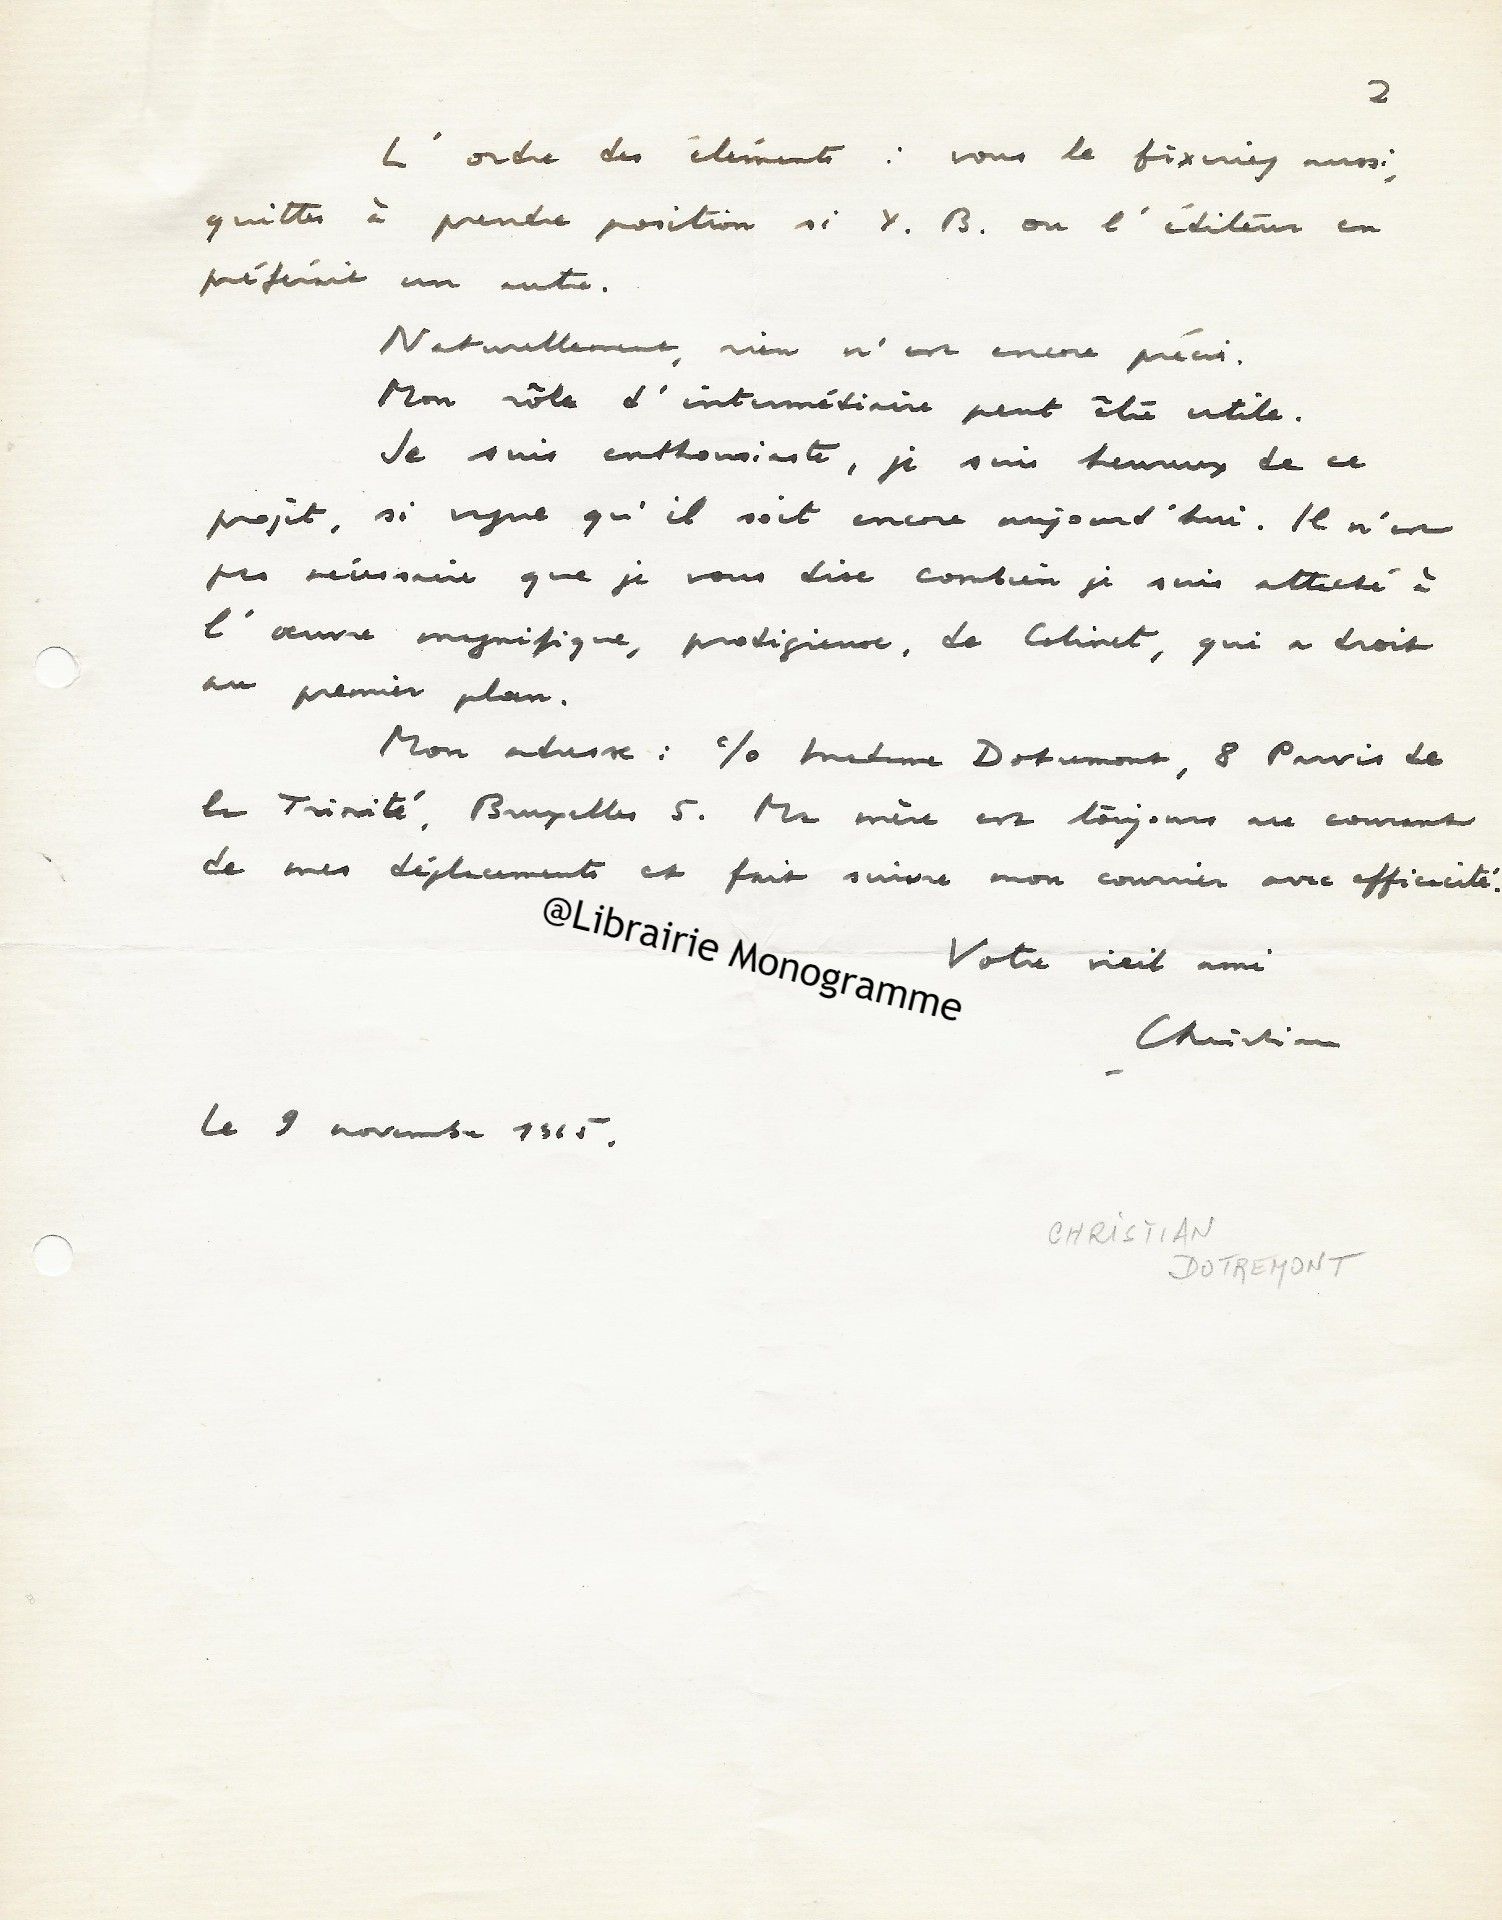 2
L'ordre des éléments : vous le fixeriez aussi,
quittes à prendre position si Y. B. ou l'éditeur en
préférait un autre.
Naturellement, rien n'est encore précis.
Mon rôle d'intermédiaire peut être utile.
Je suis enthousiaste, je suis heureux de ce
projet, si vague qu'il soit encore aujourd'hui. Il n'est
pas nécessaire que je vous dise combien je suis attaché à
l'œuvre magnifique, prodigieuse, de Colinet, qui a droit
au premier plan.
Mon adresse : c/o Madame Dotremont, 8 Parvis de
la Trinité, Bruxelles 5. Ma mère est toujours au courant
de mes déplacements et fait suivre mon courrier avec efficacité.
@Librairie Monogramme
Votre vieil ami
Christian
Le 9 novembre 1965.
CHRISTIAN
DOTREMONT